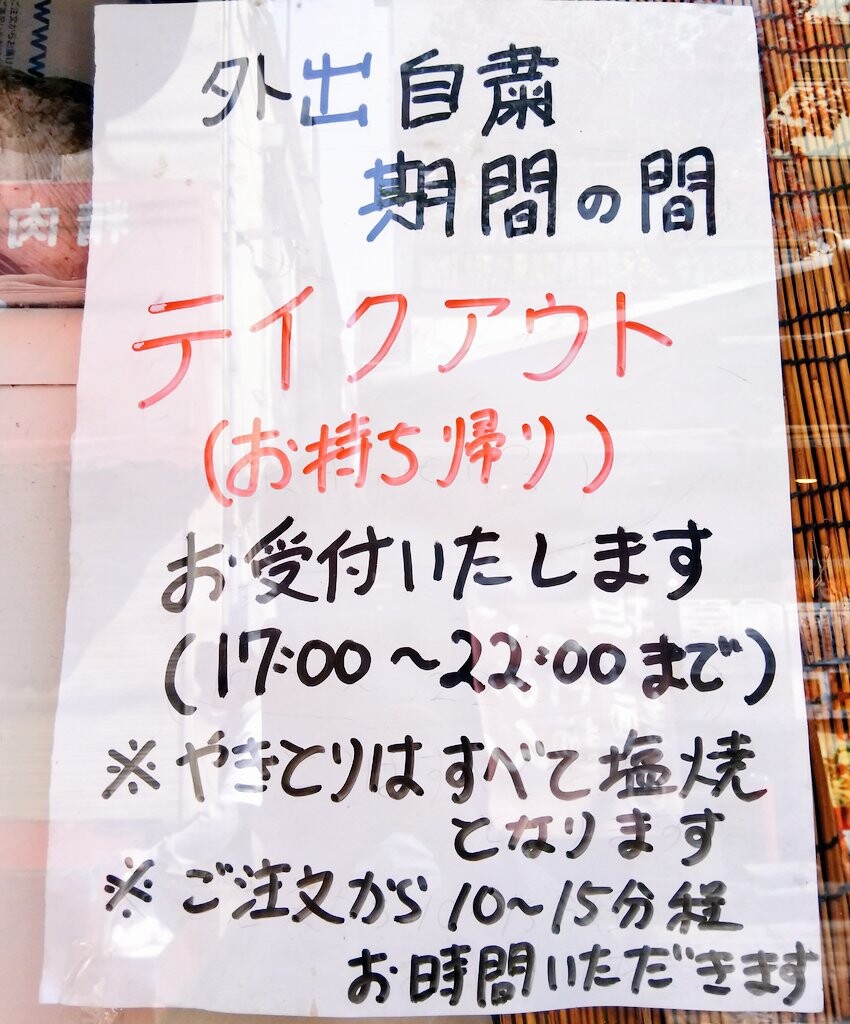 外出自粛
期間の間
テイクアウト
(お持ち帰り)
お受付いたします
(17:00〜22:00まで)
※やきとりはすべて塩焼
となります
※ご注文から10〜15分程
お時間いただきます
www